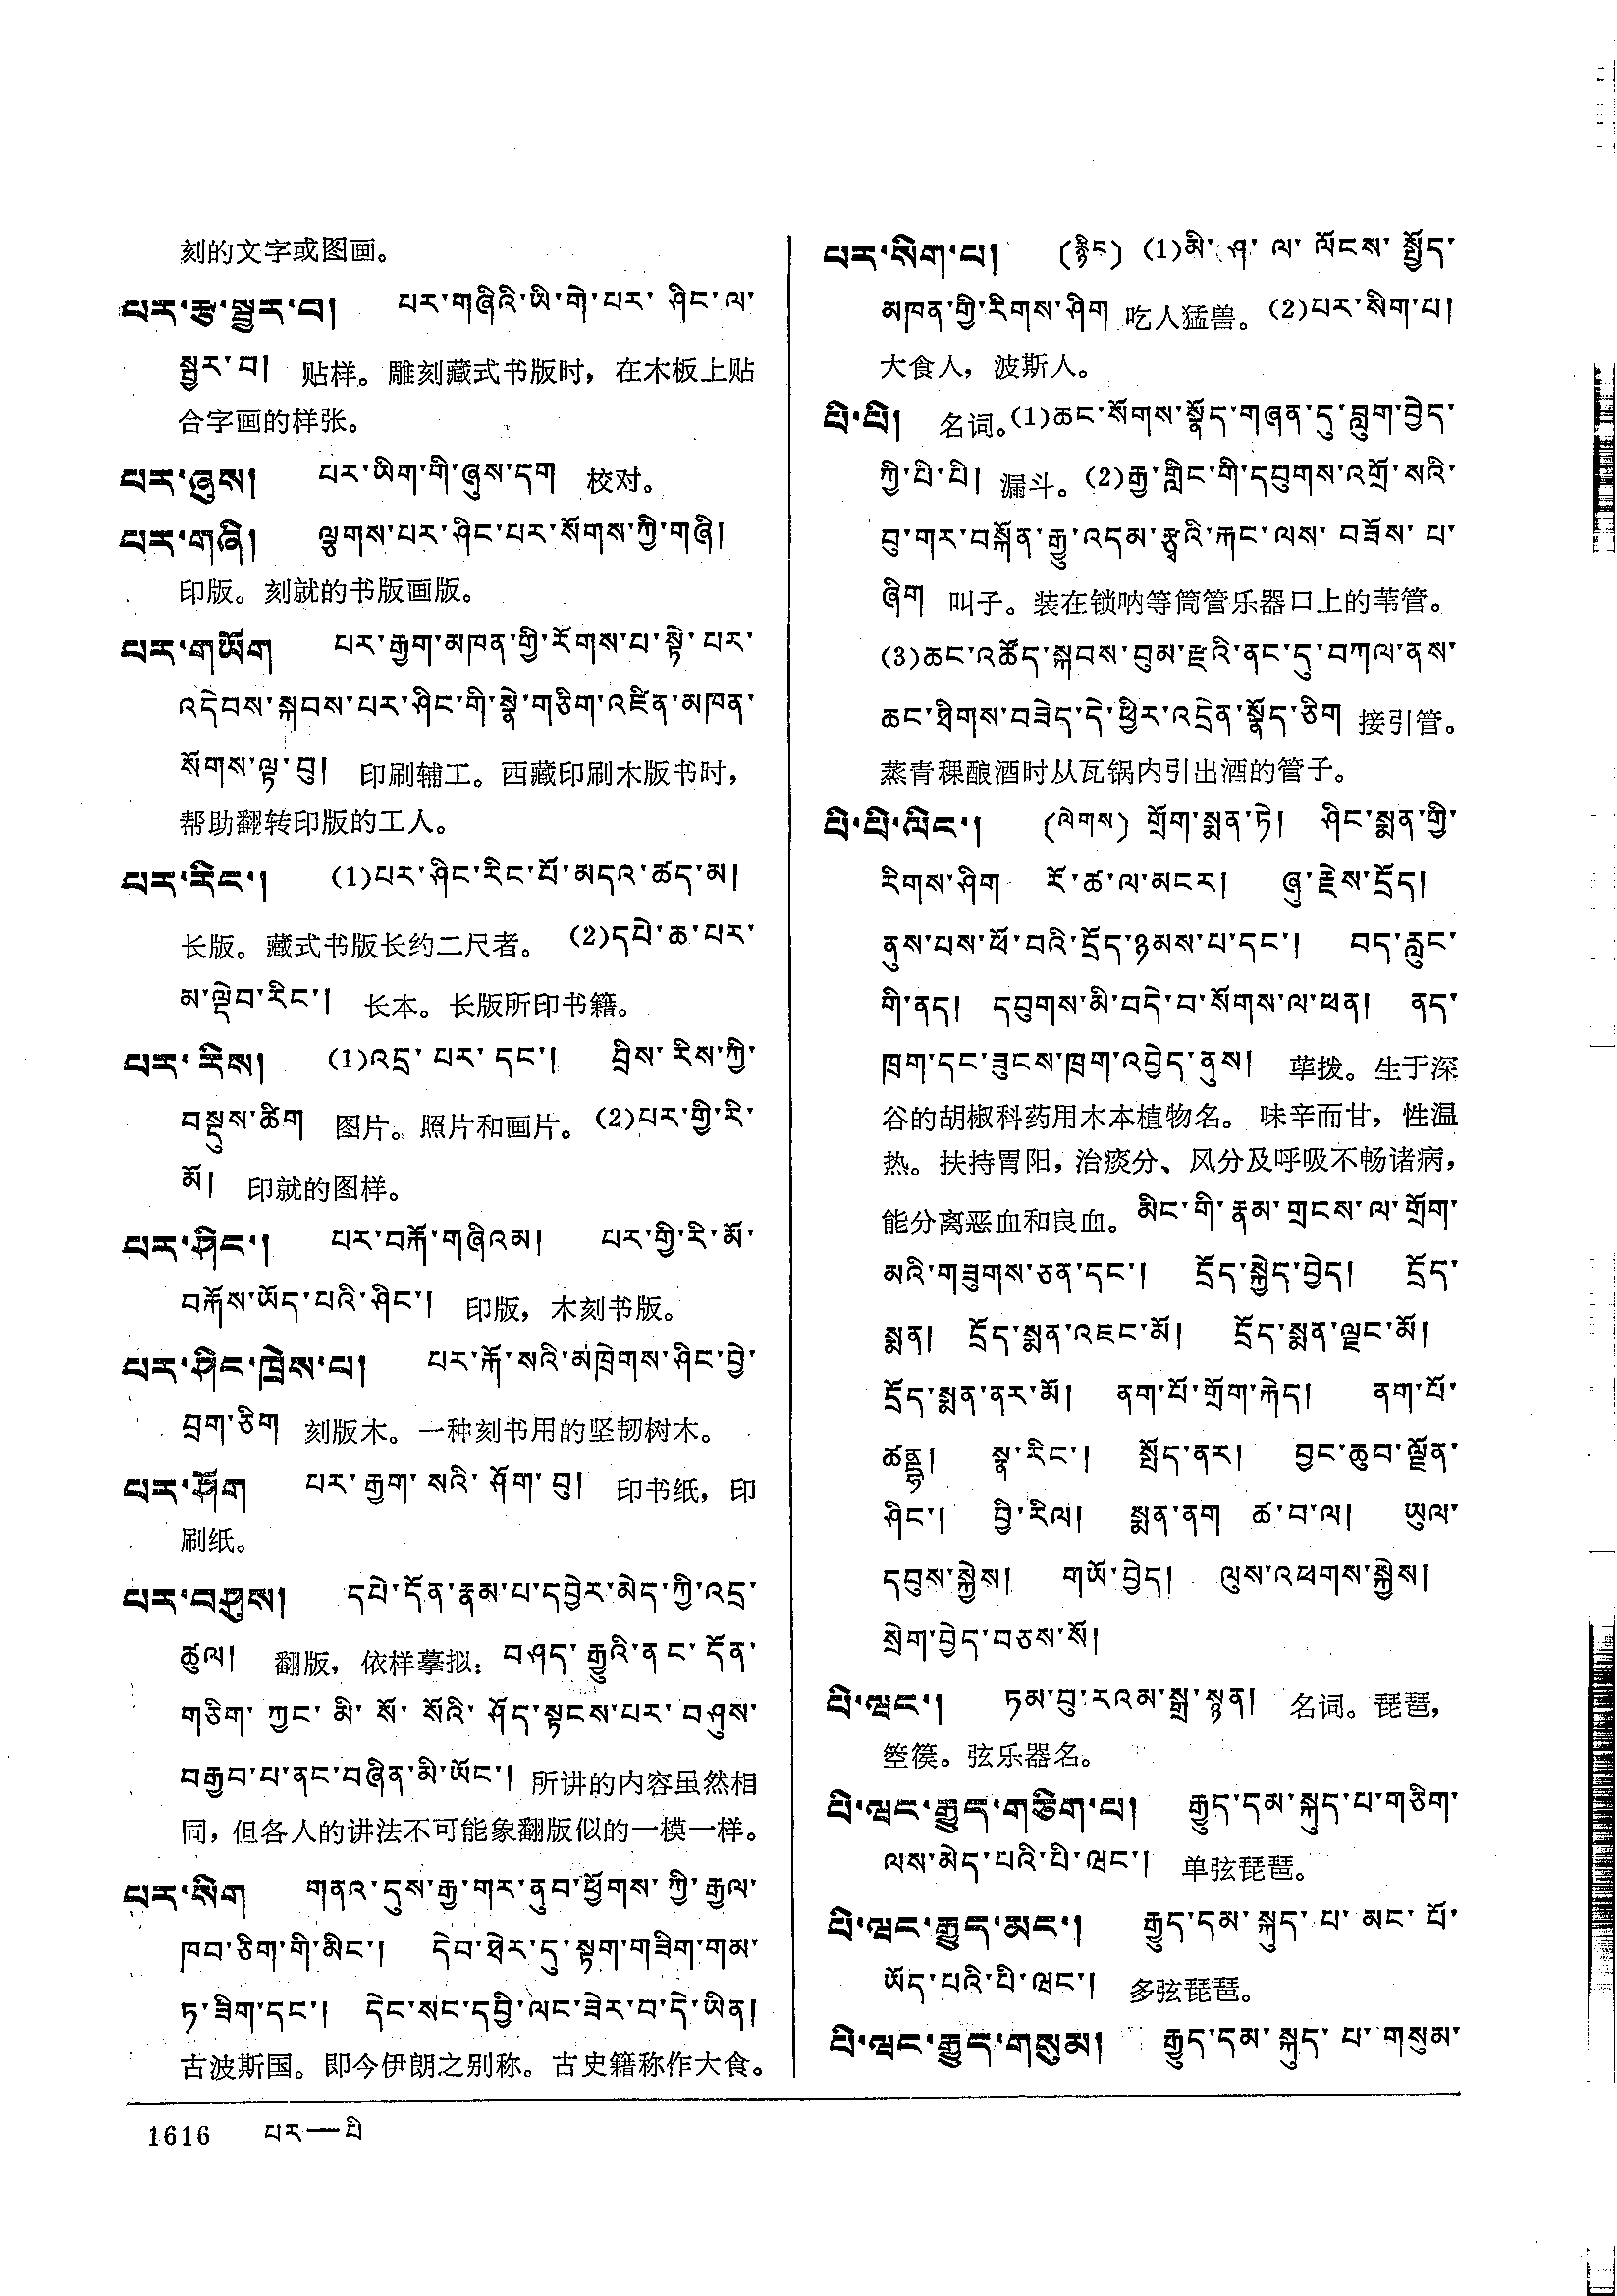 刻的文字或图画。
པར་རྩ་སྦྱར་བ། པར་གཞིའི་ཡི་གེ་པར་ ཤིང་ལ་
སྦྱར་བ། 贴样。雕刻藏式书版时，在木板上贴
合字画的样张。
པར་ཞུས། པར་ཡིག་གི་ཞུས་དག 校对。
པར་གཞི། ལྕགས་པར་ཤིང་པར་སོགས་ཀྱི་གཞི།
印版。刻就的书版画版。
པར་གཡོག པར་རྒྱག་མཁན་གྱི་རོགས་པ་སྟེ་ པར་
འདེབས་སྐབས་པར་ཤིང་གི་སྣེ་གཅིག་འཛིན་མཁན་
སོགས་ལྟ་བུ། 印刷辅工。西藏印刷木版书时，
帮助翻转印版的工人。
པར་རིང་། (1)པར་ཤིང་རིང་པོ་མདའ་ཚད་མ།
长版。藏式书版长约二尺者。 (2)དཔེ་ཆ་པར་
མ་ལྡེབ་རིང་། 长本。长版所印书籍。
པར་རིས། (1)འདྲ་ པར་ དང་། བྲིས་ རིས་ཀྱི་
བསྡུས་ཚིག 图片。照片和画片。 (2)པར་གྱི་རི་
མོ། 印就的图样。
པར་ཤིང་། པར་བརྐོ་གཞིའམ། པར་གྱི་རི་མོ་
བརྐོས་ཡོད་པའི་ཤིང་། 印版，木刻书版。
པར་ཤིང་ཁྲེས་པ། པར་རྐོ་སའི་མཁྲེགས་ཤིང་བྱེ་
བྲག་ཅིག 刻版木。一种刻书用的坚韧树木。
པར་ཤོག པར་རྒྱག་ སའི་ ཤོག་ བུ། 印书纸，印
刷纸。
པར་བཤུས། དཔེ་དོན་རྣམ་པ་དབྱེར་མེད་ཀྱི་འདྲ་
ཚུལ། 翻版，依样摹拟： བཤད་ རྒྱུའི་ནང་ དོན་
གཅིག་ ཀྱང་ མི་ སོ་ སོའི་ ཤོད་སྟངས་པར་ བཤུས་
བརྒྱབ་པ་ནང་བཞིན་མི་ཡོང་། 所讲的内容虽然相
同，但各人的讲法不可能象翻版似的一模一样。
པར་སིག གནའ་དུས་རྒྱ་གར་ནུབ་ཕྱོགས་ ཀྱི་རྒྱལ་
ཁབ་ཅིག་གི་མིང་། དེབ་ཐེར་དུ་སྟག་གཟིག་གམ་
ཏ་ཟིག་དང་། དེང་སང་དབྱི་ལང་ཟེར་བ་དེ་ཡིན།
古波斯国。即今伊朗之别称。古史籍称作大食。
པར་སིག་པ། (རྙིང) (1)མི་ ཤ་ ལ་ ལོངས་ སྤྱོད་
མཁན་གྱི་རིགས་ཤིག 吃人猛兽。 (2)པར་སིག་པ།
大食人，波斯人。
པི་པི། 名词。(1)ཆང་སོགས་སྣོད་གཞན་དུ་བླུག་བྱེད་
ཀྱི་པི་པི། 漏斗。 (2)རྒྱ་གླིང་གི་དབུགས་འགྲོ་སའི་
བུ་གར་བསྐོན་རྒྱུ་འདམ་རྩྭའི་རྐང་ལས་ བཟོས་ པ་
ཞིག 叫子。装在锁呐等筒管乐器口上的苇管。
(3)ཆང་འཚོད་སྐབས་བུམ་རྫའི་ནང་དུ་བཀལ་ནས་
ཆང་ཐིགས་བཟེད་དེ་ཕྱིར་འདྲེན་སྣོད་ཅིག 接引管。
蒸青稞酿酒时从瓦锅内引出酒的管子。
པི་པི་ལིང་། (ལེགས) གྲོག་སྨན་ཏེ། ཤིང་སྨན་གྱི་
རིགས་ཤིག རོ་ཚ་ལ་མངར། ཞུ་རྗེས་དྲོད།
ནུས་པས་ཕོ་བའི་དྲོད་ཉམས་པ་དང་། བད་རླུང་
གི་ནད། དབུགས་མི་བདེ་བ་སོགས་ལ་ཕན། ནད་
ཁྲག་དང་ཟུངས་ཁྲག་འབྱེད་ནུས། 荜拨。生于深
谷的胡椒科药用木本植物名。 味辛而甘，性温
热。扶持胃阳，治痰分、风分及呼吸不畅诸病，
能分离恶血和良血。 མིང་གི་རྣམ་གྲངས་ལ་གྲོག་
མའི་གཟུགས་ཅན་དང་། དྲོད་སྐྱེད་བྱེད། དྲོད་
སྨན། དྲོད་སྨན་འཇང་མོ། དྲོད་སྨན་ལྗང་མོ།
དྲོད་སྨན་ནར་མོ། ནག་པོ་གྲོག་རྐེད། ནག་པོ་
ཚནྡྷ། སྣ་རིང་། སྤོད་ནར། བྱང་ཆུབ་ལྗོན་
ཤིང་། བྱི་རིལ། སྨན་ནག ཚ་བ་ལ། ཡུལ་
དབུས་སྐྱེས། གཡོ་བྱེད། ལུས་འཕགས་སྐྱེས།
སྲེག་བྱེད་བཅས་སོ།
པི་ཝང་། ཏམ་བུ་རའམ་སྒྲ་སྙན། 名词。琵琶，
箜篌。弦乐器名。
པི་ཝང་རྒྱུད་གཅིག་པ། རྒྱུད་དམ་སྐུད་པ་གཅིག་
ལས་མེད་པའི་པི་ཝང་། 单弦琵琶。
པི་ཝང་རྒྱུད་མང་། རྒྱུད་དམ་ སྐུད་ པ་ མང་ པོ་
ཡོད་པའི་པི་ཝང་། 多弦琵琶。
པི་ཝང་རྒྱུད་གསུམ། རྒྱུད་དམ་ སྐུད་ པ་ གསུམ་
1616 པར—པི